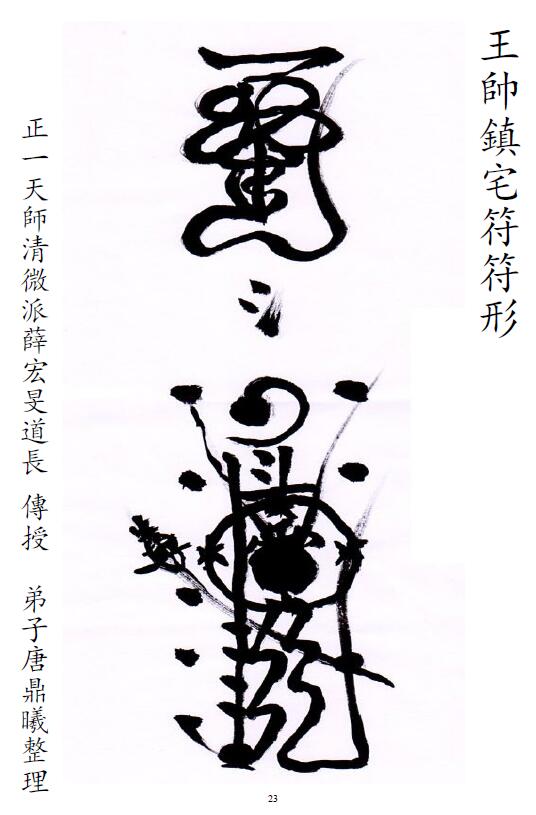 王帥鎮宅符符形
正一天師清微派薛宏旻道長 傳授 弟子唐鼎曦整理
23